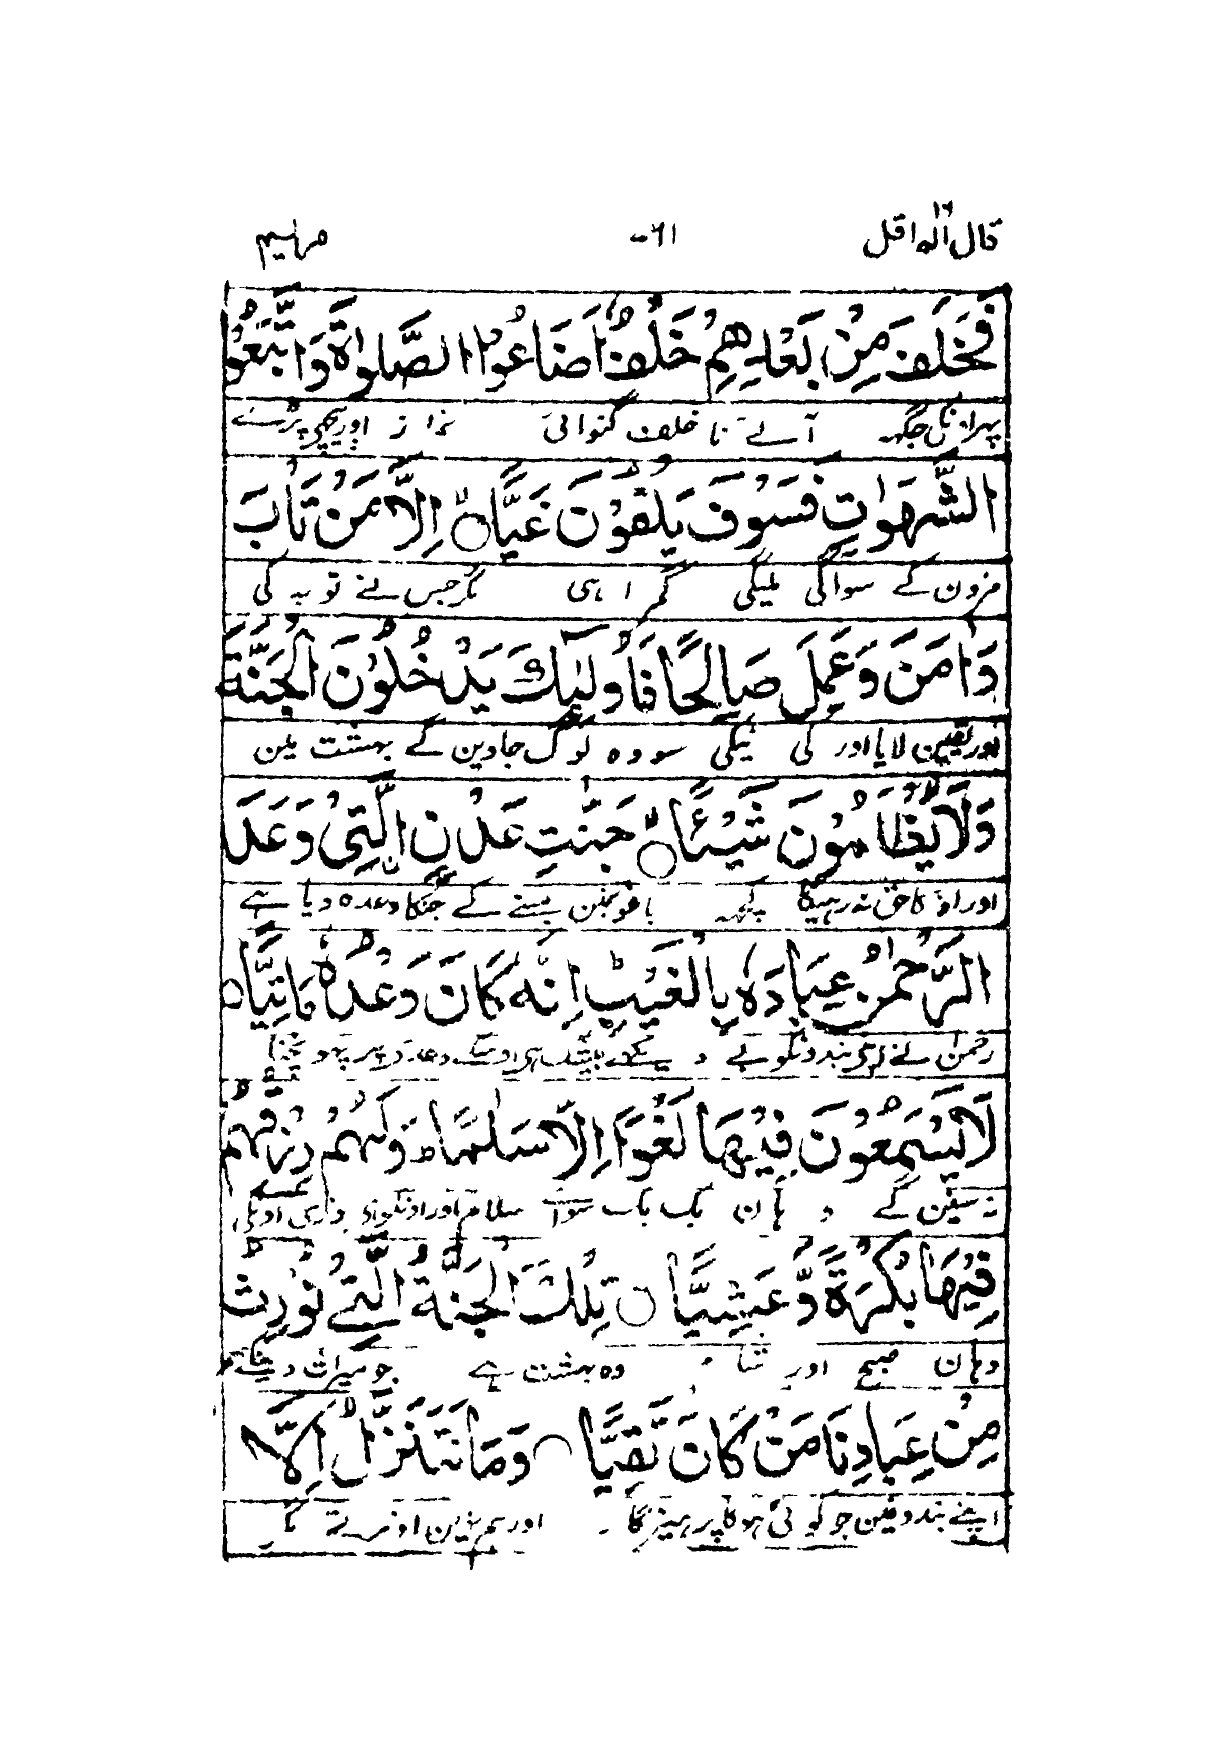 قال الم اقل ١٦ ٦١- مریم
فَخَلَفَ مِنْ بَعْدِهِمْ خَلْفٌ اَضَاعُوا الصَّلٰوةَ وَاتَّبَعُوا
پہر انکی جگہہ آئے نا خلف گنوائی نماز اور پیچھے پڑے
الشَّهَوٰتِ فَسَوْفَ يَلْقَوْنَ غَيًّا ۝ اِلَّا مَنْ تَابَ
مزون کے سو آگی ملیگی گمراہی مگر جس نے توبہ کی
وَاٰمَنَ وَعَمِلَ صَالِحًا فَاُولٰٓئِكَ يَدْخُلُوْنَ الْجَنَّةَ
اور یقین لایا اور کی نیکی سو وہ لوگ جاوین گے بہشت مین
وَلَا يُظْلَمُوْنَ شَيْئًا ۝ جَنّٰتِ عَدْنِ ِۨالَّتِيْ وَعَدَ
اور انکا حق نہ رہیگا کچہہ باغونمین بسنے کے جنکا وعدہ دیا ہے
الرَّحْمٰنُ عِبَادَهٗ بِالْغَيْبِ اِنَّهٗ كَانَ وَعْدُهٗ مَاْتِيًّا ۝
رحمن نے اپنی بندونکو بے دیکھے بیشک ہی اوسکے وعدہ پر پہونچنا
لَا يَسْمَعُوْنَ فِيْهَا لَغْوًا اِلَّا سَلٰمًا وَلَهُمْ رِزْقُهُمْ
نہ سنین گے وہان بک بک سوائے سلام اور اونکو اونکی
فِيْهَا بُكْرَةً وَّعَشِيًّا ۝ تِلْكَ الْجَنَّةُ الَّتِيْ نُوْرِثُ
وہان صبح اور شام وہ بہشت ہے جو میراث دینگے
مِنْ عِبَادِنَا مَنْ كَانَ تَقِيًّا ۝ وَمَا نَتَنَزَّلُ اِلَّا
اپنے بندونمین جو کوئی ہوگا پرہیزگار اور ہم نہین اوترتے مگر